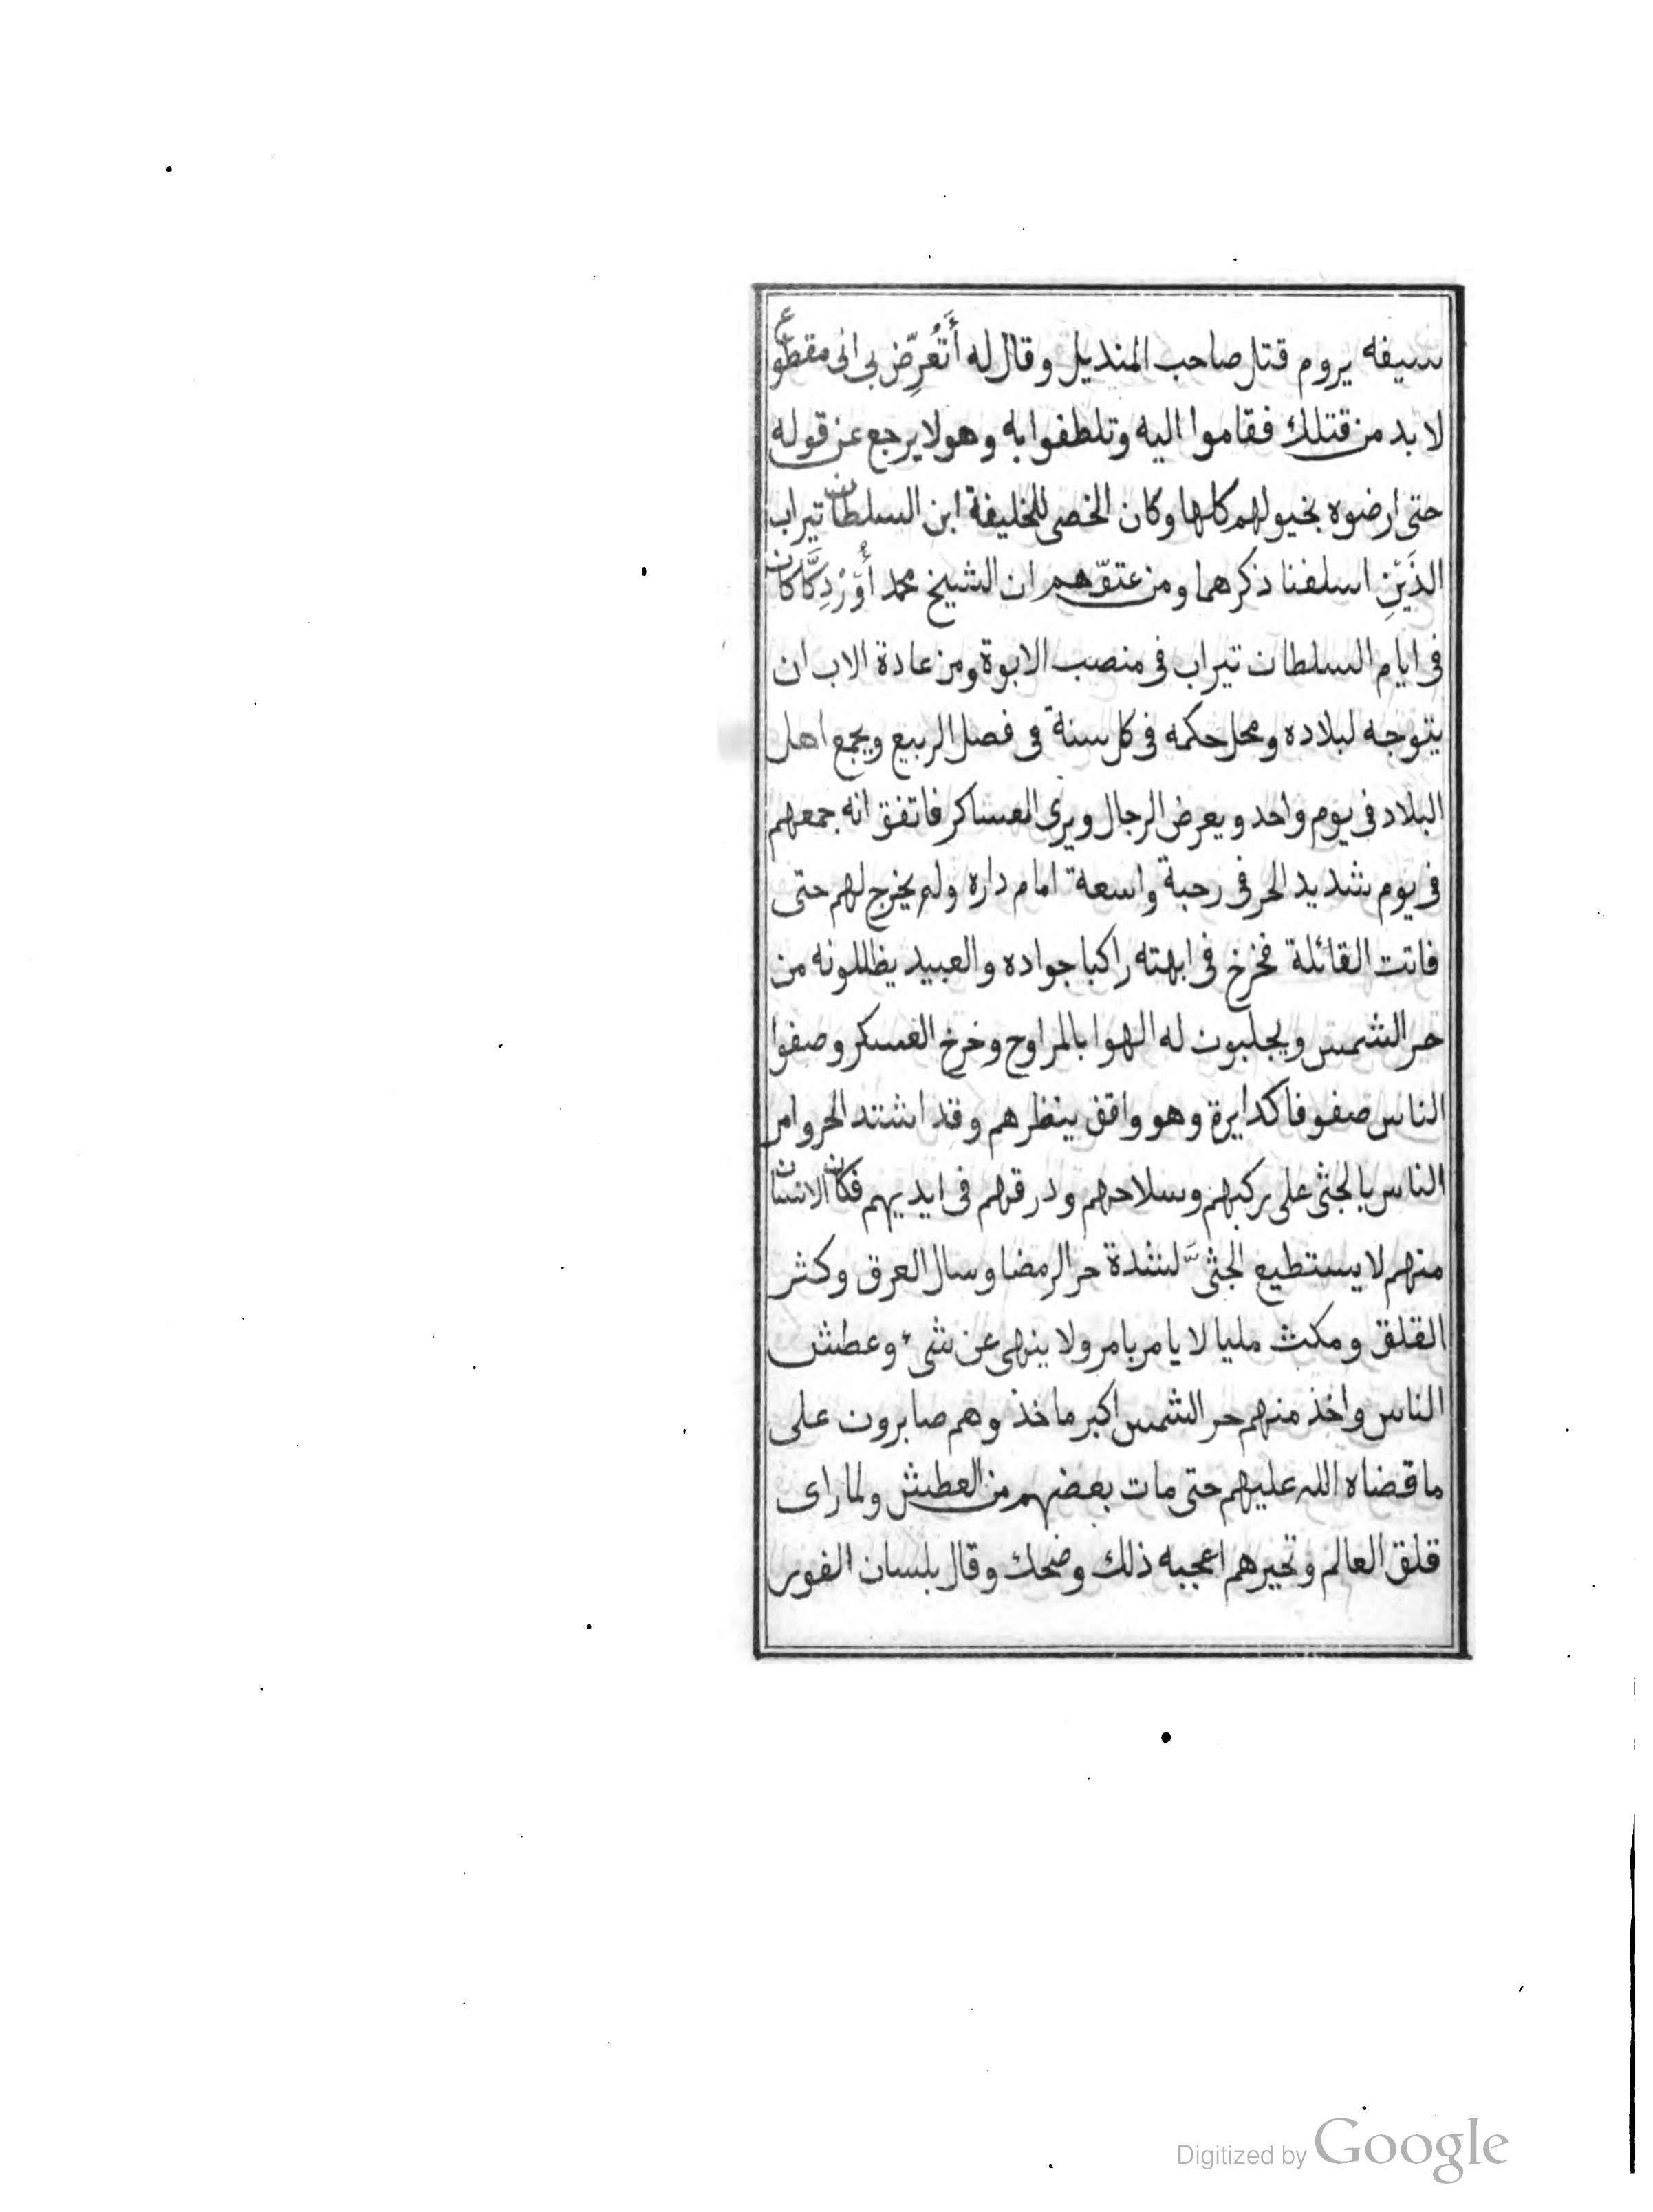 سيفه يروم قتل صاحب المنديل وقال له أَتُعَرِّض بى انى مقطوع
لا بد من قتلك فقاموا اليه وتلطفوا به وهو لا يرجع عن قوله
حتى ارضوه بخيولهم كلها وكان الخصى للخليفة ابن السلطان تيراب
الذَيْنِ اسلفنا ذكرهما ومن عتوّهم ان الشيخ محمد أُوَّرْدِكَّا كان
فى ايام السلطان تيراب فى منصب الابوة ومن عادة الاب ان
يتوجه لبلاده ومحل حكمه فى كل سنة فى فصل الربيع ويجمع اهل
البلاد فى يوم واحد ويعرض الرجال ويرى العساكر فاتفق انه جمعهم
فى يوم شديد الحر فى رحبة واسعة امام داره ولم يخرج لهم حتى
فاتت القائلة فخرخ فى ابهته راكبا جواده والعبيد يظللونه من
حر الشمس ويجلبون له الهوا بالمراوح وخرخ العسكر وصفوا
الناس صفوفا كدايرة وهو واقف ينظرهم وقد اشتد الحر وامر
الناس بالجثى على ركبهم وسلاحهم ودرقهم فى ايديهم فكان الانسان
منهم لا يستطيع الجثىَّ لشدة حر الرمضا وسال العرق وكثر
القلق ومكث مليا لا يامر بامر ولا ينهى عن شىء وعطش
الناس واخذ منهم حر الشمس اكبر ماخذ وهم صابرون على
ما قضاه الله عليهم حتى مات بعضهم من العطش ولما راى
قلق العالم وتحيرهم اعجبه ذلك وضحك وقال بلسان الفور
Digitized by Google